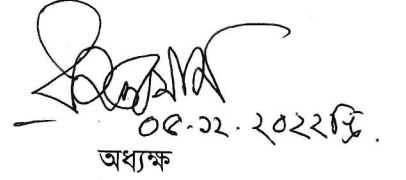 ০৫-১২-২০২২খ্রি.
অধ্যক্ষ